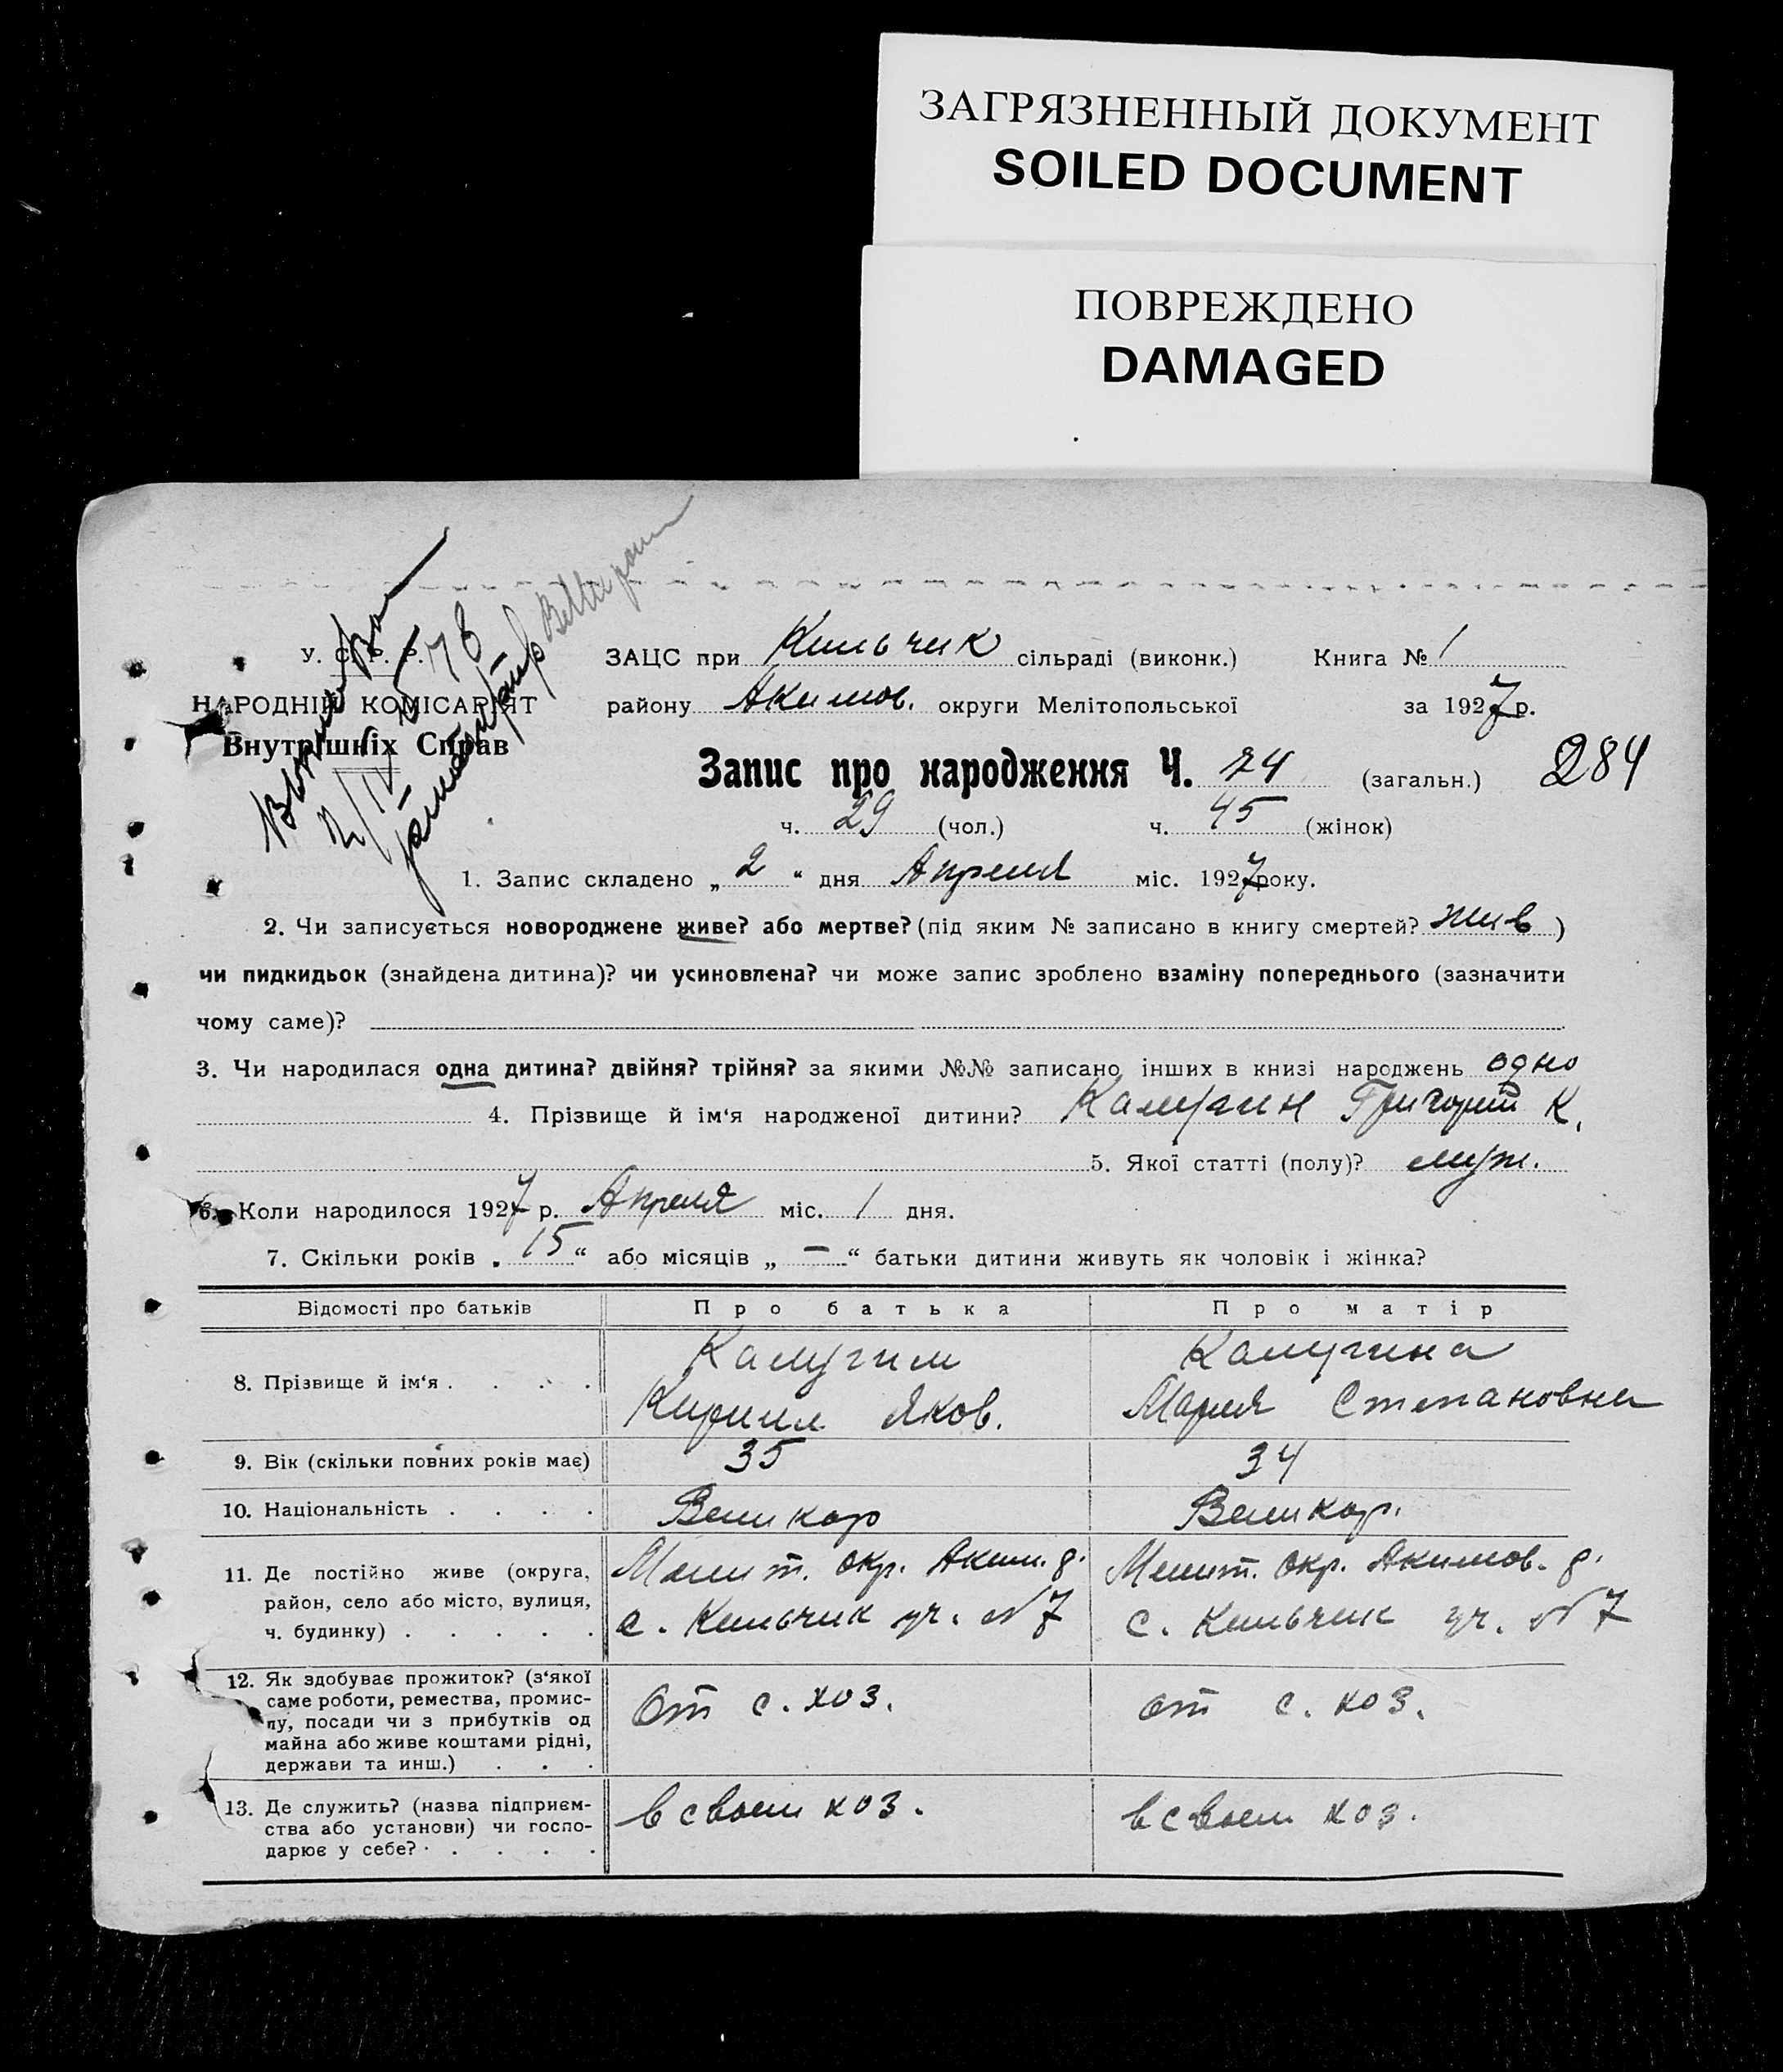 ЗАГРЯЗНЕННЫЙ ДОКУМЕНТ
SOILED DOCUMENT
ПОВРЕЖДЕНО
DAMAGED
У. С. Р. Р.
НАРОДНІЙ КОМІСАРІЯТ
Внутрішніх Справ
ЗАЦС при Кильчик сільраді (виконк.) Книга № 1
району Акимов. округи Мелітопольської за 1927 р.
Запис про народження Ч. 74 (загальн.) 284
ч. 29 (чол.) ч. 45 (жінок)
1. Запис складено „ 2 “ дня Апреля міс. 1927 року.
2. Чи записується новороджене живе? або мертве? (під яким № записано в книгу смертей? жив )
чи пидкидьок (знайдена дитина)? чи усиновлена? чи може запис зроблено взаміну попереднього (зазначити
чому саме)?
3. Чи народилася одна дитина? двійня? трійня? за якими №№ записано інших в книзі народжень одно
4. Прізвище й ім‘я народженої дитини? Калугин Григорий К.
5. Якої статті (полу)? муж.
6. Коли народилося 1927 р. Апреля міс. 1 дня.
7. Скільки років „ 15 “ або місяців „ — “ батьки дитини живуть як чоловік і жінка?
Відомості про батьків Про батька Про матір
8. Прізвище й ім‘я . . . . Калугин Калугина
Кирилл Яков. Мария Степановна
9. Вік (скільки повних років має) 35 34
10. Національність . . . . Великор Великор.
11. Де постійно живе (округа, район, село або місто, вулиця, ч. будинку) . . . . . Мелит. окр. Аким. р. Мелит. окр. Акимов. р.
с. Кильчик уч. №7 с. Кильчик уч. №7
12. Як здобуває прожиток? (з‘якої саме роботи, ремества, промислу, посади чи з прибутків од майна або живе коштами рідні, держави та инш.) . . . От с. хоз. от с. хоз.
13. Де служить? (назва підприємства або установи) чи господарює у себе? . . . . в своем хоз. в своем хоз.